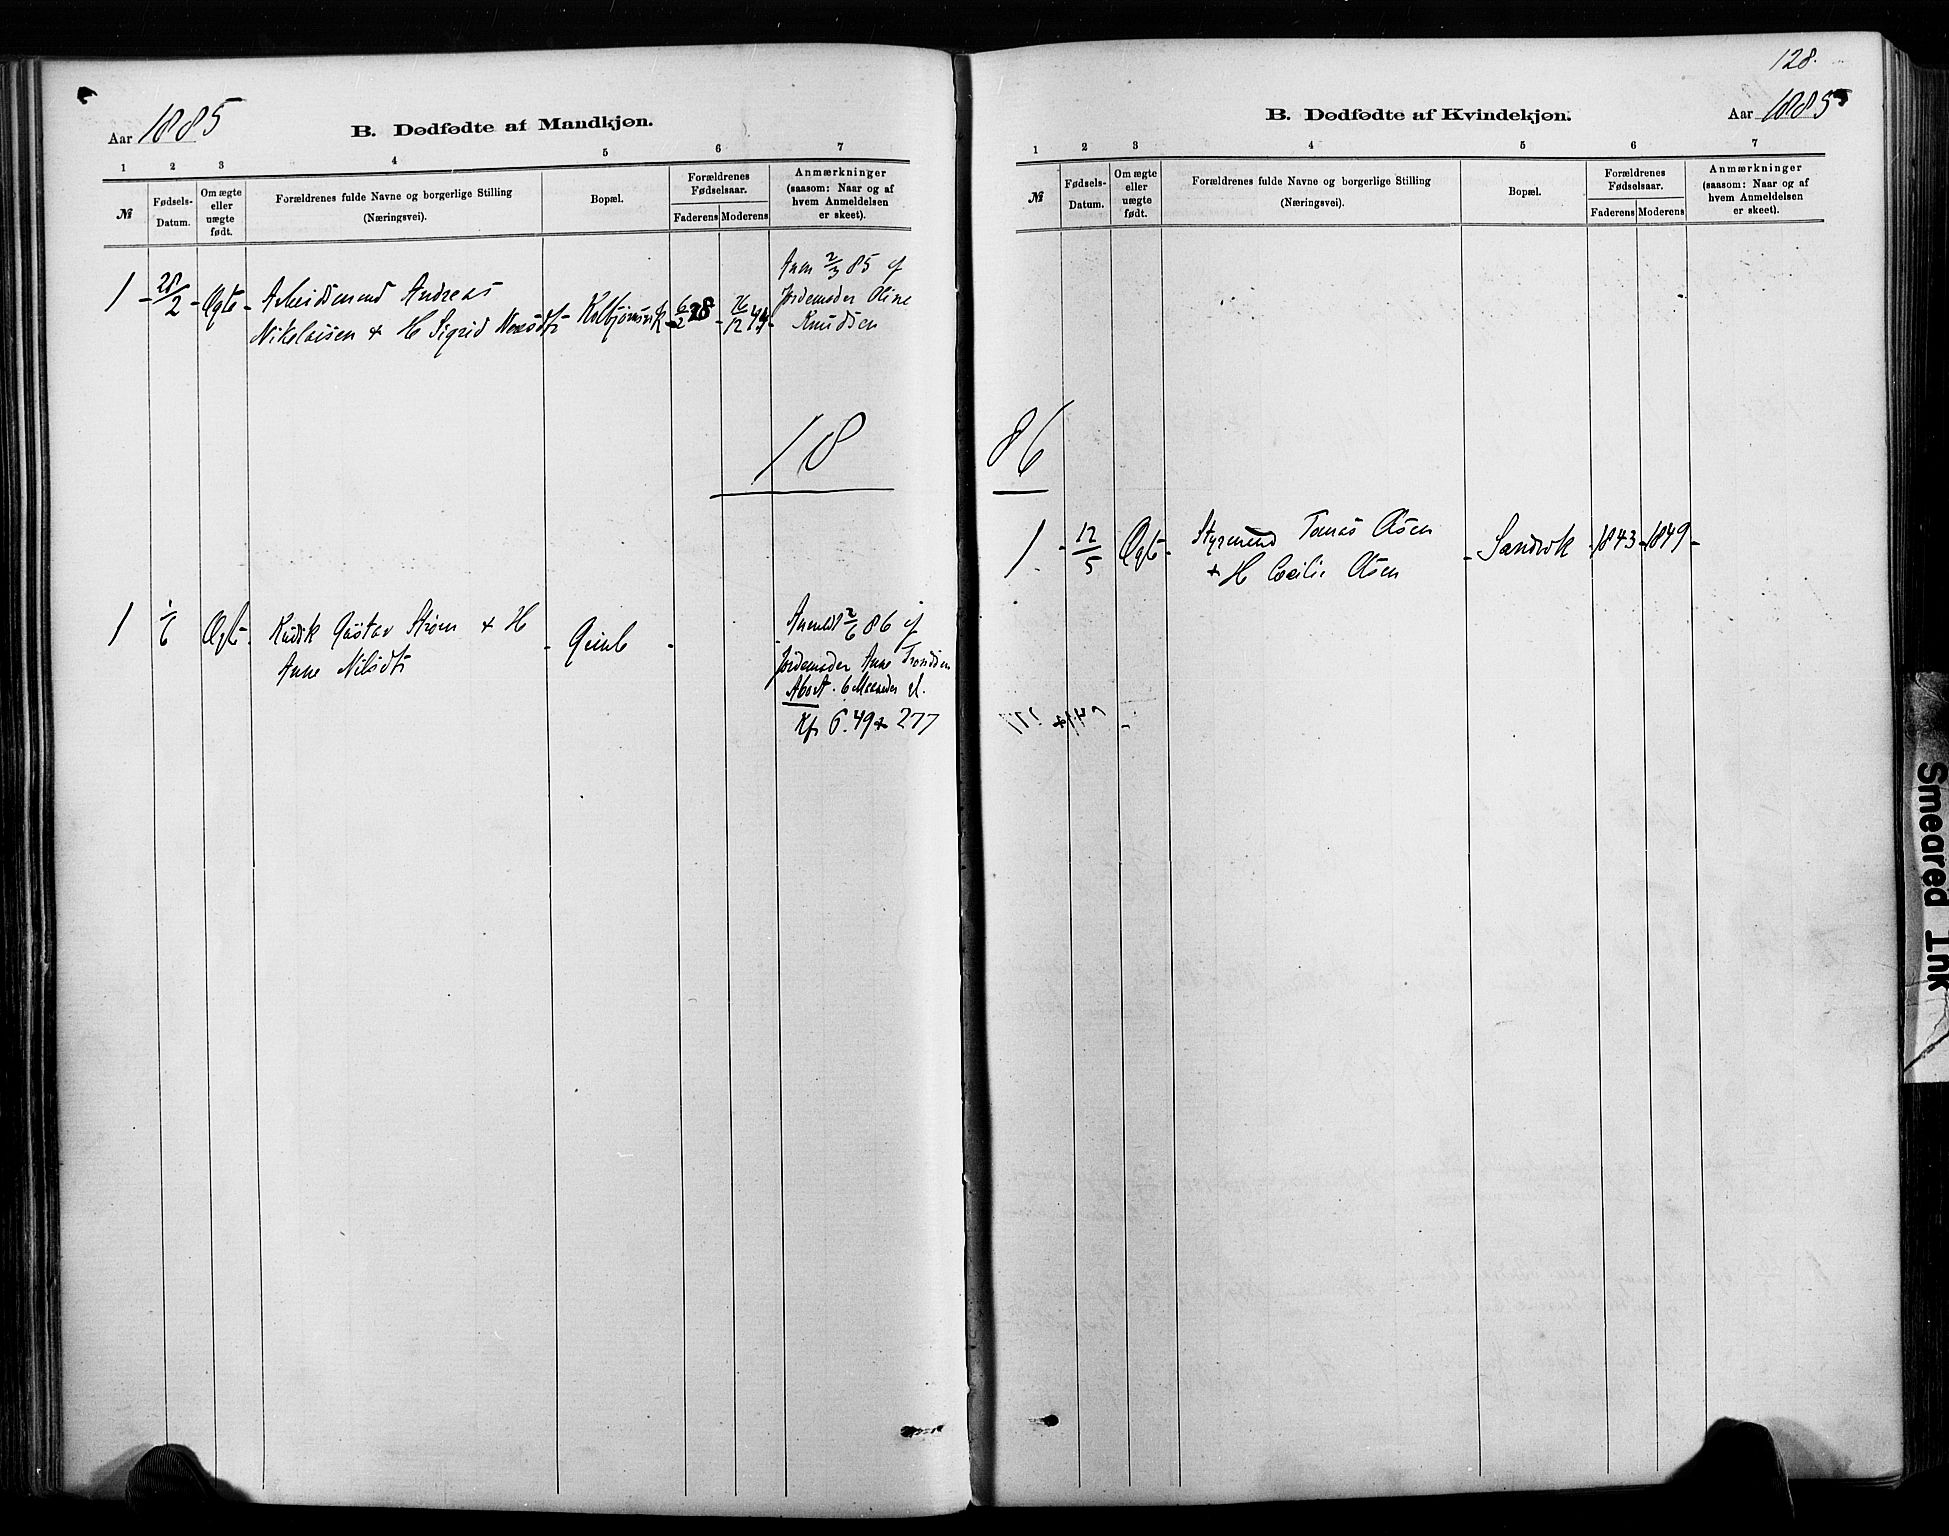 Aar 1885
B. Dødfødte af Mandkjøn.
1 2 3 4 5 6 7
№
Fødsels-
Datum.
Om ægte
eller
uægte
født.
Forældrenes fulde Navne og borgerlige Stilling
(Næringsvei).
Bopæl.
Forældrenes
Fødselsaar.
Faderens Moderens
Anmærkninger
(saasom: Naar og af
hvem Anmeldelsen
er skeet).
1 28/2 Ægte Arbeidsmand Andreas
Nikolaisen + H Sigrid
6/2 28
26/12 44
Anm 2/3 85 af
Jordemoder Oline
Knudsen
18
1 1/6 Ægte Gustav Strøm + H
Anne Nilsdt
Anmeldt 2/6 86 af
Jordemoder Anne
Abort. 6 Maaneder gl.
Kfr 6.49 + 277
128.
B. Dødfødte af Kvindekjøn.
Aar 1885
1 2 3 4 5 6 7
№
Fødsels-
Datum.
Om ægte
eller
uægte
født.
Forældrenes fulde Navne og borgerlige Stilling
(Næringsvei).
Bopæl.
Forældrenes
Fødselsaar.
Faderens Moderens
Anmærkninger
(saasom: Naar og af
hvem Anmeldelsen
er skeet).
86
1 12/5 Ægte Styrmand Tomas Olsen
+ H Cecilie Olsen
Sandvik 1843 1849
Smeared Ink